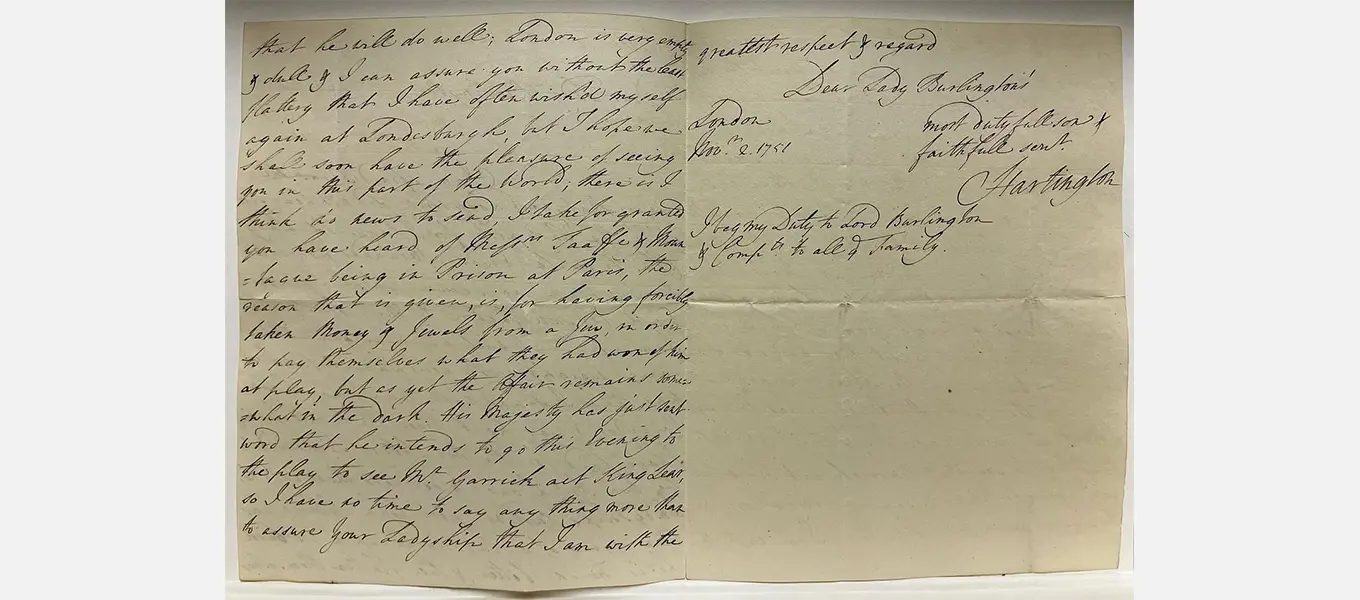 that he will do well; London is very empty
& dull & I can assure you without the least
flattery that I have often wish'd myself
again at Londesburgh, but I hope we
shall soon have the pleasure of seeing
you in this part of the World; there is I
think no news to send, I take for granted
you have heard of Mess.rs Taaffe & Mon
=tague being in Prison at Paris, the
reason that is given, is, for having forcibly
taken Money & Jewels from a Jew, in order
to pay themselves what they had won of him
at play, but as yet the Affair remains some=
=what in the dark. His Majesty has just sent
word that he intends to go this Evening to
the play to see Mr. Garrick act King Lear,
so I have no time to say any thing more than
to assure Your Ladyship that I am with the
greatest respect & regard
Dear Lady Burlington's
most dutyfull son &
faithfull serv.t
Hartington
London
Nov.r 2. 1751
I beg my Duty to Lord Burlington
& Comp.ts to all ye Family.